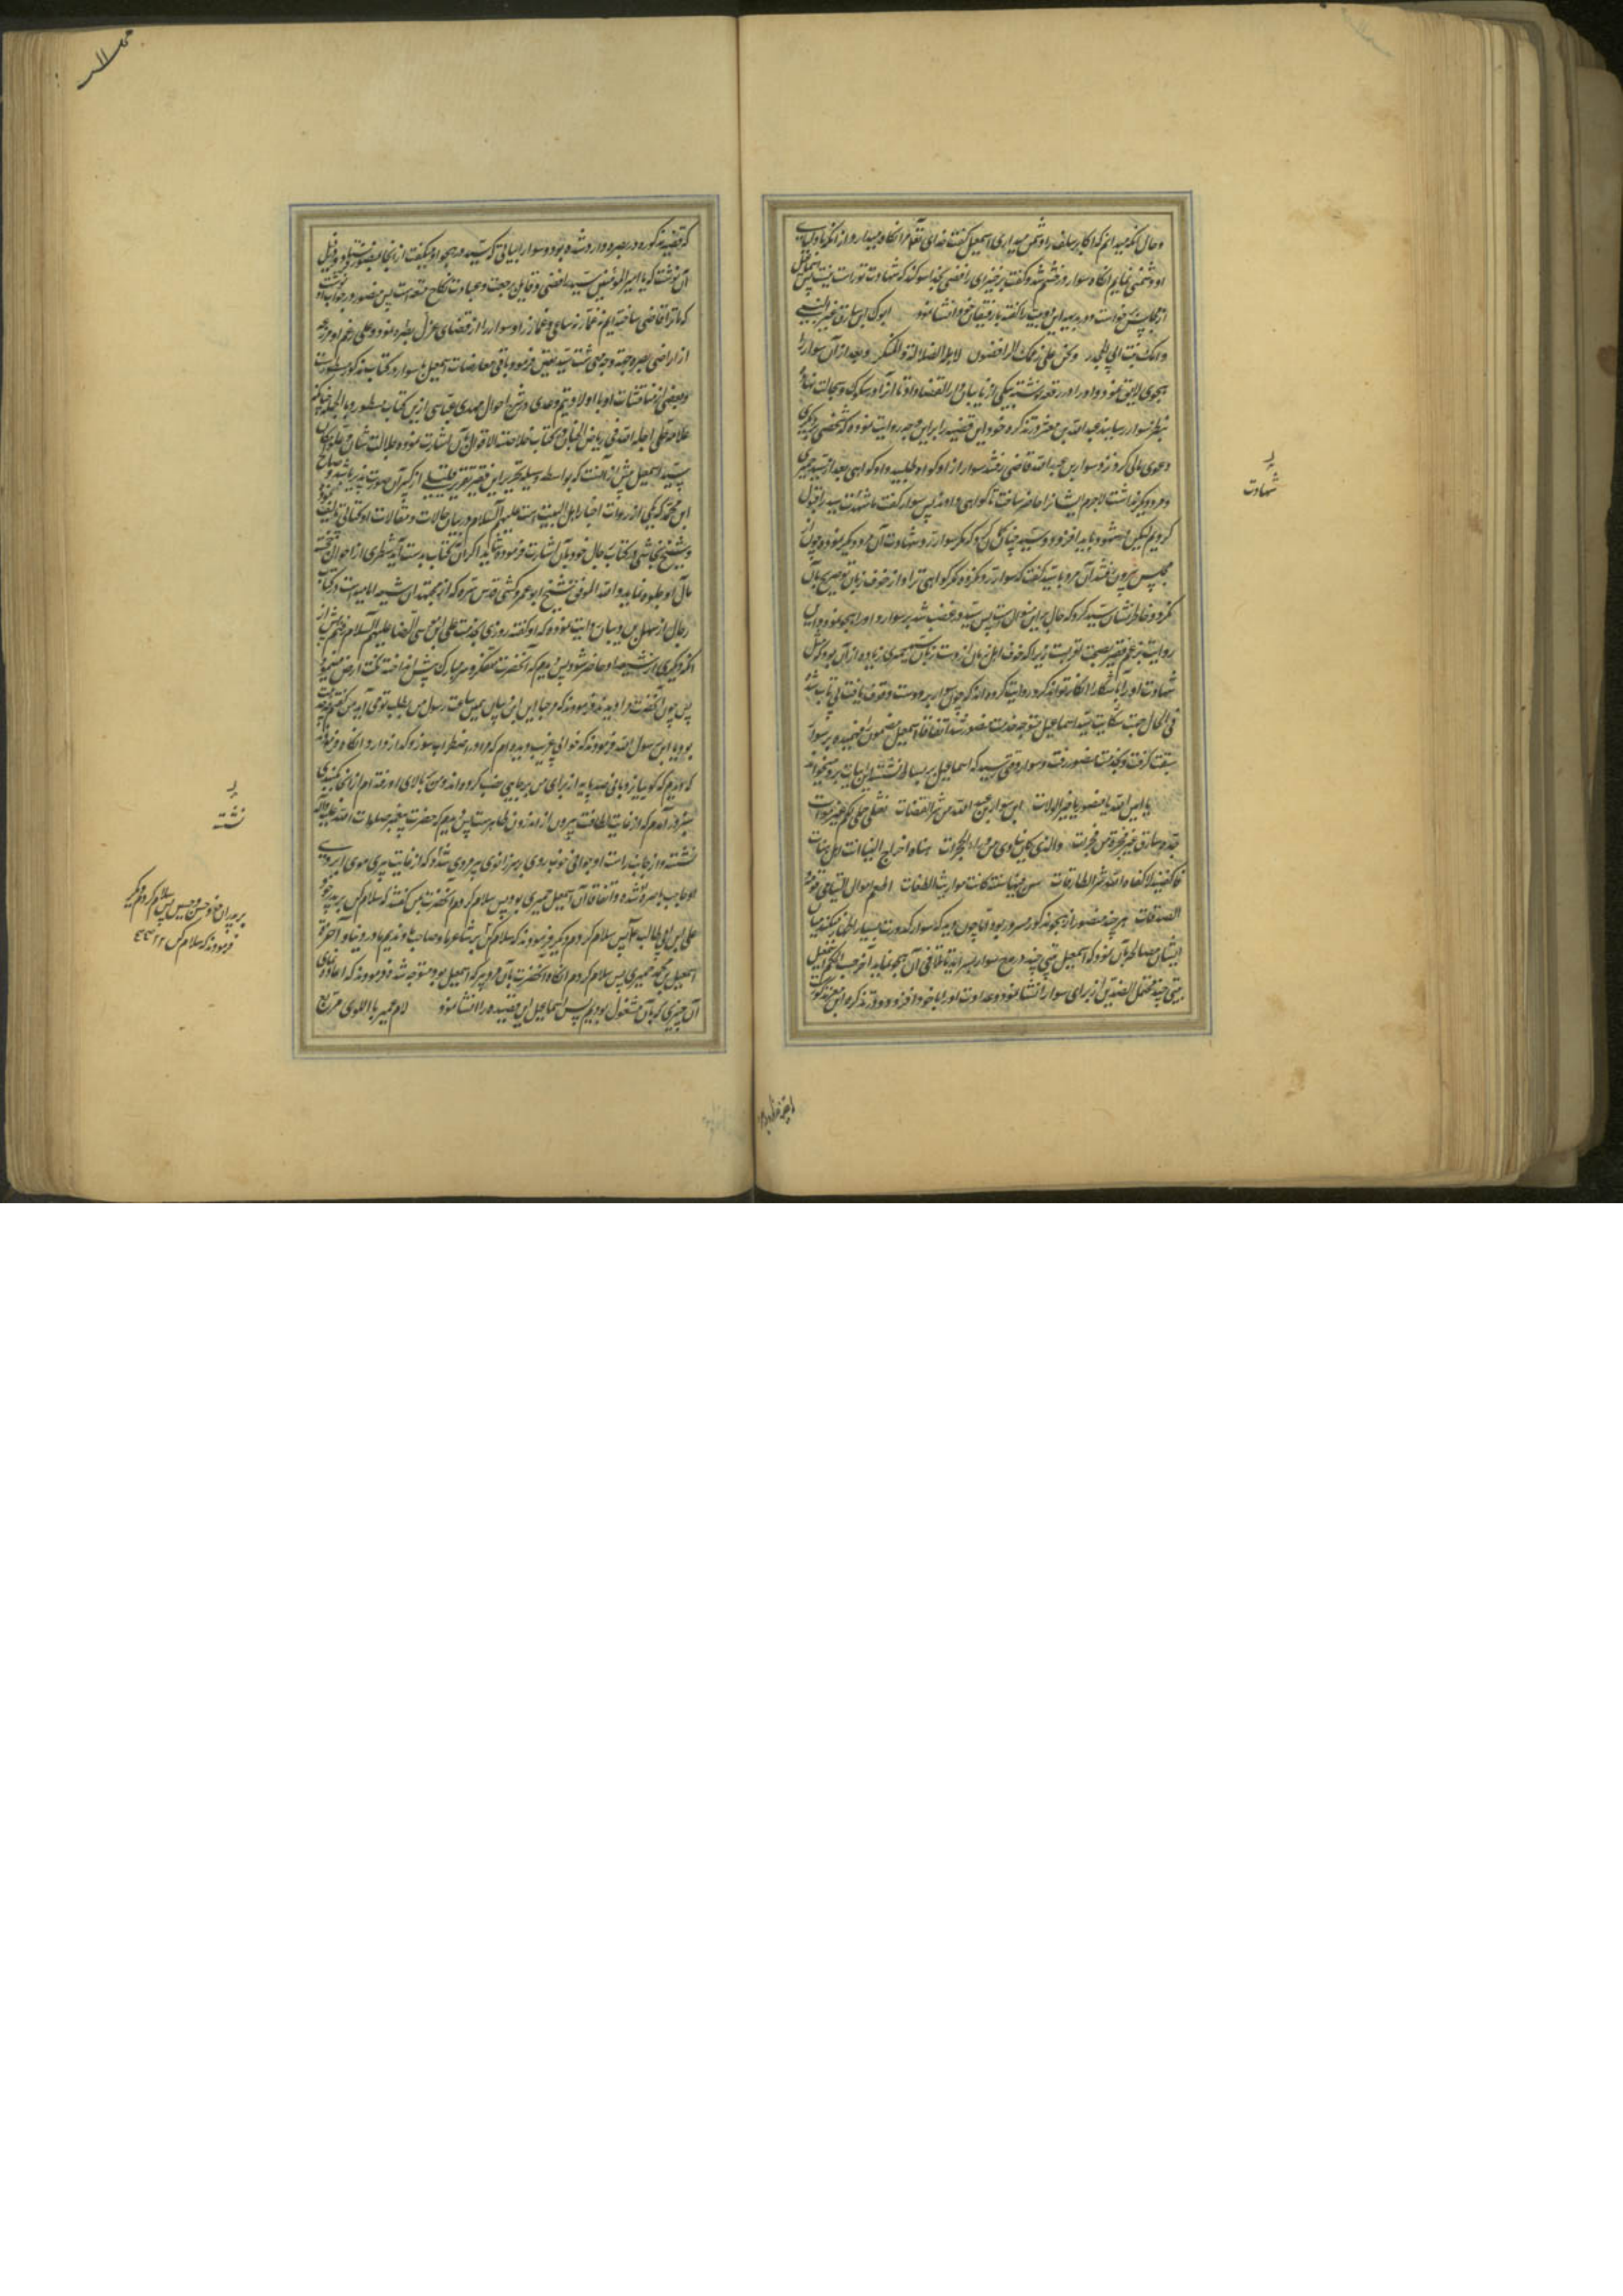 و حال آنکه میدانم که اکابر سلف را دشمن میداری اسمعیل گفت خدای تعالی مرا نگاه میدارد از آنکه با اولیای
او دشمنی نمایم آنگاه سوار در خشم شد و گفت برخیز ای رافضی بخدا سوگند که شهادت تو راست نیست پس اسمعیل
از مجلس برخواست و بدیهه این دو بیت را گفته با رفیقان خود انشا نمود ابوک ابن سارق عنز النبی
وامک بنت ابی الجحدر ونحن علی زعمک الرافضون لاهل الضلالة والمنکر و بعد از آن سوار را
هجوی لایق نمود و او را در رقعه نوشته
بنظر سوار رسانید عبد الله بن معتز در تذکره خود این قضیه را بر این وجه روایت نموده که شخصی بر دیگری
دعوی مالی کرد نزد سوار بن عبد الله قاضی رفتند سوار از او گواه طلبید و او گواهی بغیر از سید حمیری
و مرد دیگر نداشت لاجرم ایشانرا حاضر ساخت تا گواهی دادند پس سوار گفت ما شهادت سید را قبول
کردیم لیکن در شهود باید افزود و سید چنان گمان کرد که مگر سوار رد شهادت آن مرد دیگر نموده چون از
مجلس بیرون رفتند آن مرد با سید گفت که سوار رد نکرده مگر گواهی ترا و از خوف زبان تو تصریح بآن
نکرد و خاطرنشان سید کرد که حال بر این منوال است پس سید در غضب شد بر سوار و او را هجا نمود و این
روایت بزعم فقیر بصحت اقربست زیرا که خوف اهل زمان از دست زبان سید حمیری زیاده از آن بود که مثل
شهادت او را آشکارا انکار تواند کرد و روایت کرده اند که چون سوار بر دو بیت وقوف یافت بی تاب شد
فی الحال جهت شکایت سید اسماعیل متوجه خدمت منصور شد اتفاقا اسمعیل مضمون فهمیده بر سوار
سبقت گرفت و بخدمت منصور رفت و سوار وقتی رسید که اسماعیل بر بساط نشسته این ابیات برو میخواند
یا امین الله یا منصور یا خیر الولات ان سوار بن عبد الله من شر القضات نعثلی جملی لکم غیر موات
جده سارق عنز فجرة من فجرات والذی کان ینادی من وراء الحجرات یا هناه اخرج الینا اننا اهل هنات
فاکفنیه لا کفاه الله شر الطارقات سن فینا سننا کانت مواریث الطغات اطعم اموال الیتامی قومه
الصدقات هر چند منصور از هجو مذکور مسرور بود اما چون دید که سوار کدورت بسیار اظهار میکند میان
ایشان مصالحه بآن نمود که اسمعیل بیتی چند در مدح سوار بسراید تا تلافی آن هجو نماید آخر حسب الحکم اسمعیل
بیتی چند محتمل الضدین از برای سوار انشا نمود و عداوت او را با خود افزود و در تذکره ابن معتز مذکورست
شهادت
که قضیه مذکوره در بصره وارد شده بود و سوار ابیاتی که سید در هجو او میگفت از آنجا بمنصور نوشت و در ذیل
آن نوشت که یا امیر المؤمنین سید رافضی و قایل برجعت و عباحت نکاح متعه است پس منصور در جواب او نوشت
که ما ترا قاضی ساخته ایم نه غماز و ساعی و غماز را و سوار را از قضای عزل بصره نمود و علی رغم او مزرعه
از اراضی بصره جهت وجه معیشت سید تعیین فرمود و باقی معارضات اسمعیل با سوار در کتاب مذکور مسطورست
و بعضی از مناقشات او با اولاد تیم و عدی در شرح احوال مهدی عباسی از این کتاب مسطور و بالجمله چنانکه
علامه حلی اجله الله فی ریاض الجنان در کتاب خلاصة الاقوال بآن اشارت نموده جلالت شان و علو مکان
سید اسمعیل بیش از آنست که بواسطه وسیله تحریر این فقیر تقریر قلیلی از کثیر آن صورت پذیر باشد و صالح
ابن محمد که یکی از روات اخبار اهل البیت است علیهم السلام در بیان حالات و مقالات او کتابی تالیف نموده
و شیخ نجاشی در کتاب رجال خود بآن اشارت فرموده شاید اگر آن کتاب بدست آید شطری از احوال خجسته
مآل او جلوه نماید و الله الموفق شیخ ابو عمرو کشی قدس سره که از مجتهدان شیعه امامیه است در کتاب
رجال از سهل بن دبیان روایت نموده که او گفته روزی بخدمت علی ابن موسی الرضا علیهم السلام رفتم پیش از
آنکه دیگری از شیعه او حاضر شود پس دیدم که آنحضرت متفکر و سر مبارک پیش انداخته نکت ارض مینمود
پس چون آنحضرت مرا دیدند فرمودند که مرحبا ای ابن دبیان همین ساعت رسول من بطلب تو می آید من گفتم چه
بود یا ابن رسول الله فرمودند که خوابی عجیب دیده ام که مرا در اضطراب و سوز و گداز دارد آنگاه فرمود
که دیدم که گویا نردبانی صد پایه از برای من بر جایی نصب کرده اند و من ببالای او رفته ام از آنجا بگنبدی
سبز در آمدم که از غایت لطافت بیرون از اندرون ظاهرست پس دیدم که حضرت پیغمبر صلوات الله علیه و آله
نشسته و از جانب راست او جوانی خوبروی بر سر زانوی پیرمردی سر نهاده که از غایت پیری موی ابروی
او حاجب باصره شده و اتفاقا آن اسمعیل حمیری بود پس سلام کردم آنحضرت بمن گفتند که سلام کن بر پدر خود
علی ابن ابی طالب پس سلام کردم و دیگر فرمودند که سلام کن بر شاعر ما و صاحب ما و ندیم ما در دنیا و آخرت
اسمعیل بن محمد حمیری پس سلام کردم آنگاه آنحضرت بآن مرد پیر که اسمعیل بود متوجه شد فرمودند که اعاده نمای
آن چیزی که بآن مشغول بودیم پس اسماعیل این قصیده را انشا نمود لام عمرو باللوی مربع
نشسته
بر پدران خود حسن و حسین پس سلام کردم دیگر
فرمودند که سلام کن